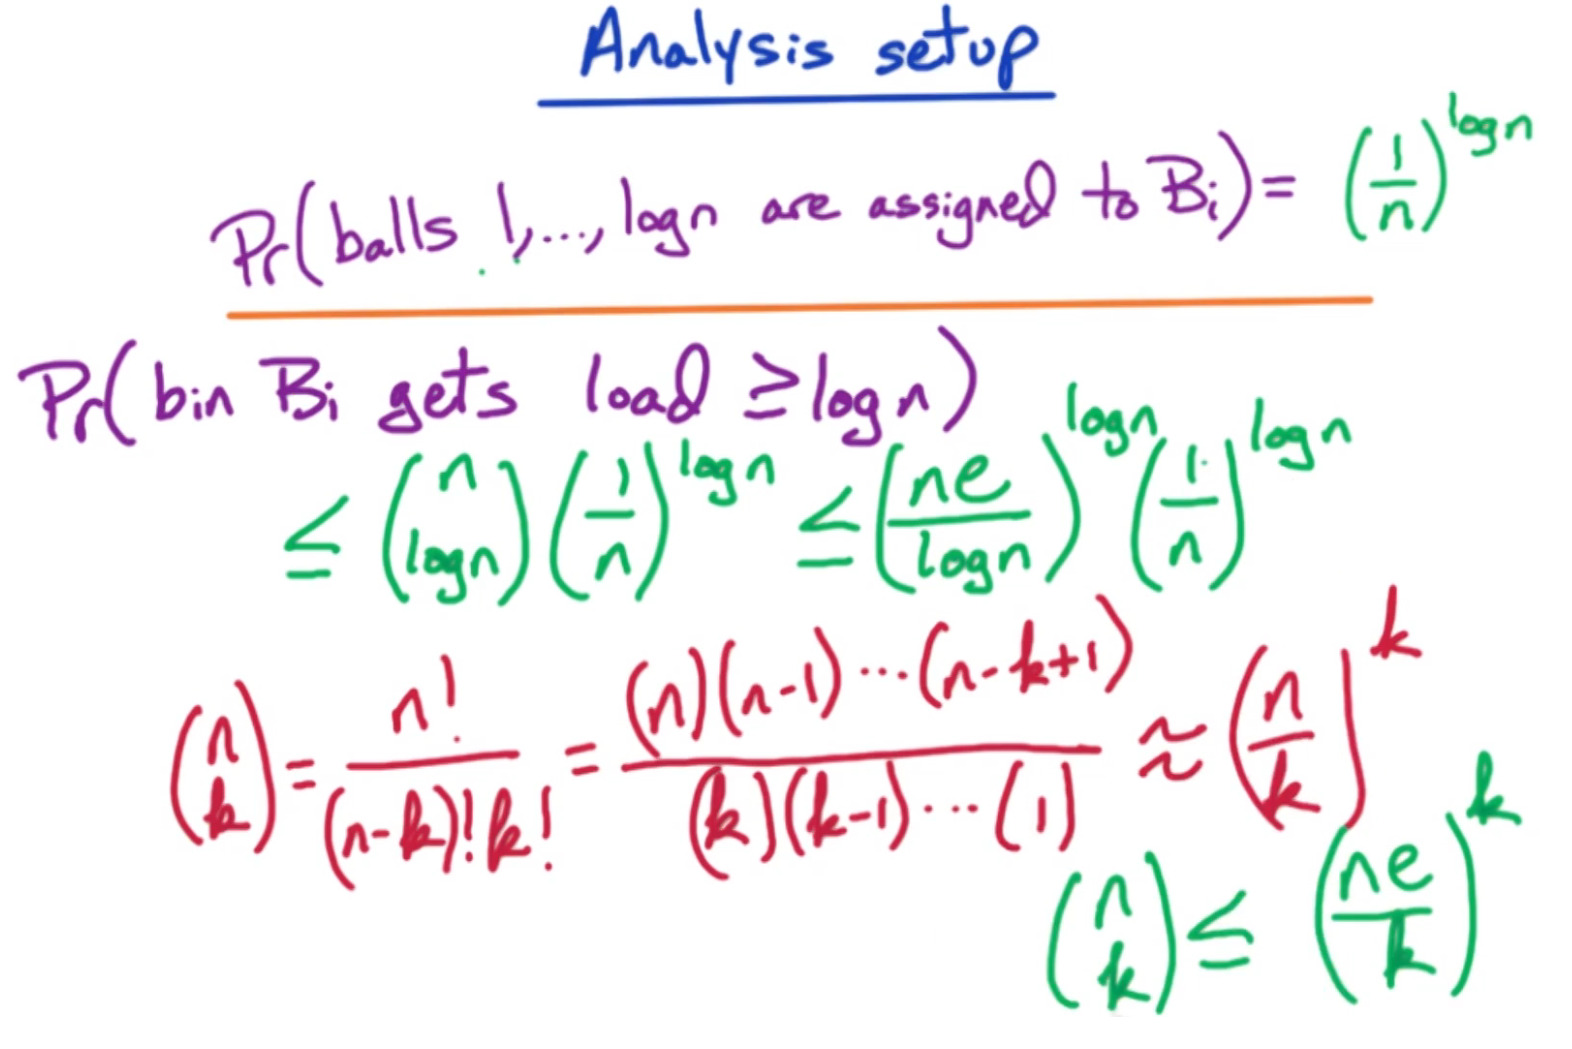 Analysis setup
Pr(balls 1,...,logn are assigned to Bᵢ) = (1/n)^logn
Pr(bin Bᵢ gets load ≥ logn)
≤ (n choose logn) (1/n)^logn ≤ (ne/logn)^logn (1/n)^logn
(n choose k) = n!/((n-k)!k!) = (n)(n-1)...(n-k+1)/((k)(k-1)...(1)) ≈ (n/k)^k
(n choose k) ≤ (ne/k)^k